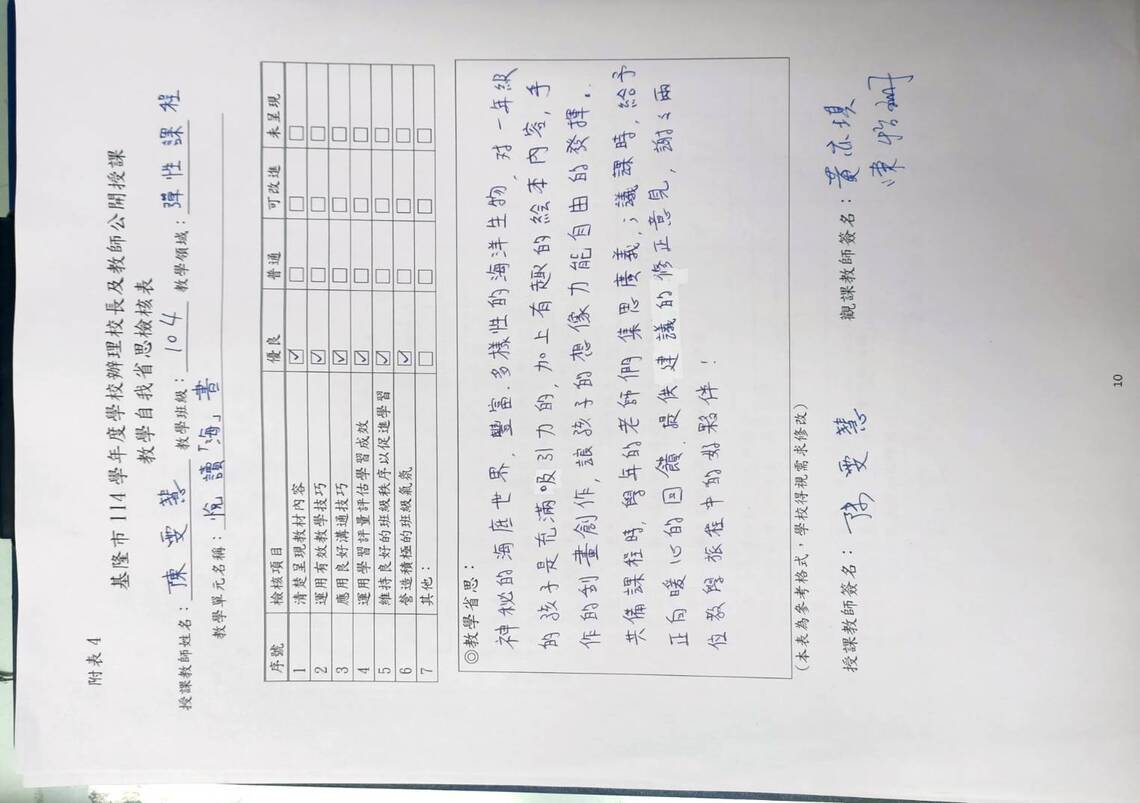 附表 4
基隆市 114 學年度學校辦理校長及教師公開授課
教學自我省思檢核表
授課教師姓名：陳雯慧 教學班級：104 教學領域：彈性課程
教學單元名稱：悅讀「海」書
序號 檢核項目 優良 普通 可改進 未呈現
1 清楚呈現教材內容 ☑ □ □ □
2 運用有效教學技巧 ☑ □ □ □
3 應用良好溝通技巧 ☑ □ □ □
4 運用學習評量評估學習成效 ☑ □ □ □
5 維持良好的班級秩序以促進學習 ☑ □ □ □
6 營造積極的班級氣氛 ☑ □ □ □
7 其他： □ □ □ □
◎教學省思：
神秘的海底世界，豐富．多樣性的海洋生物，對一年級
的孩子是充滿吸引力的，加上有趣的繪本內容，手
作的刮畫創作，讓孩子的想像力能自由的發揮．
共備課程時，學年的老師們集思廣義，；議課時，給予
正向暖心的回饋．提供建議的修正意見，謝々兩
位教學旅程中的好夥伴！
(本表為參考格式，學校得視需求修改)
授課教師簽名：陳雯慧 觀課教師簽名：黃
陳
10